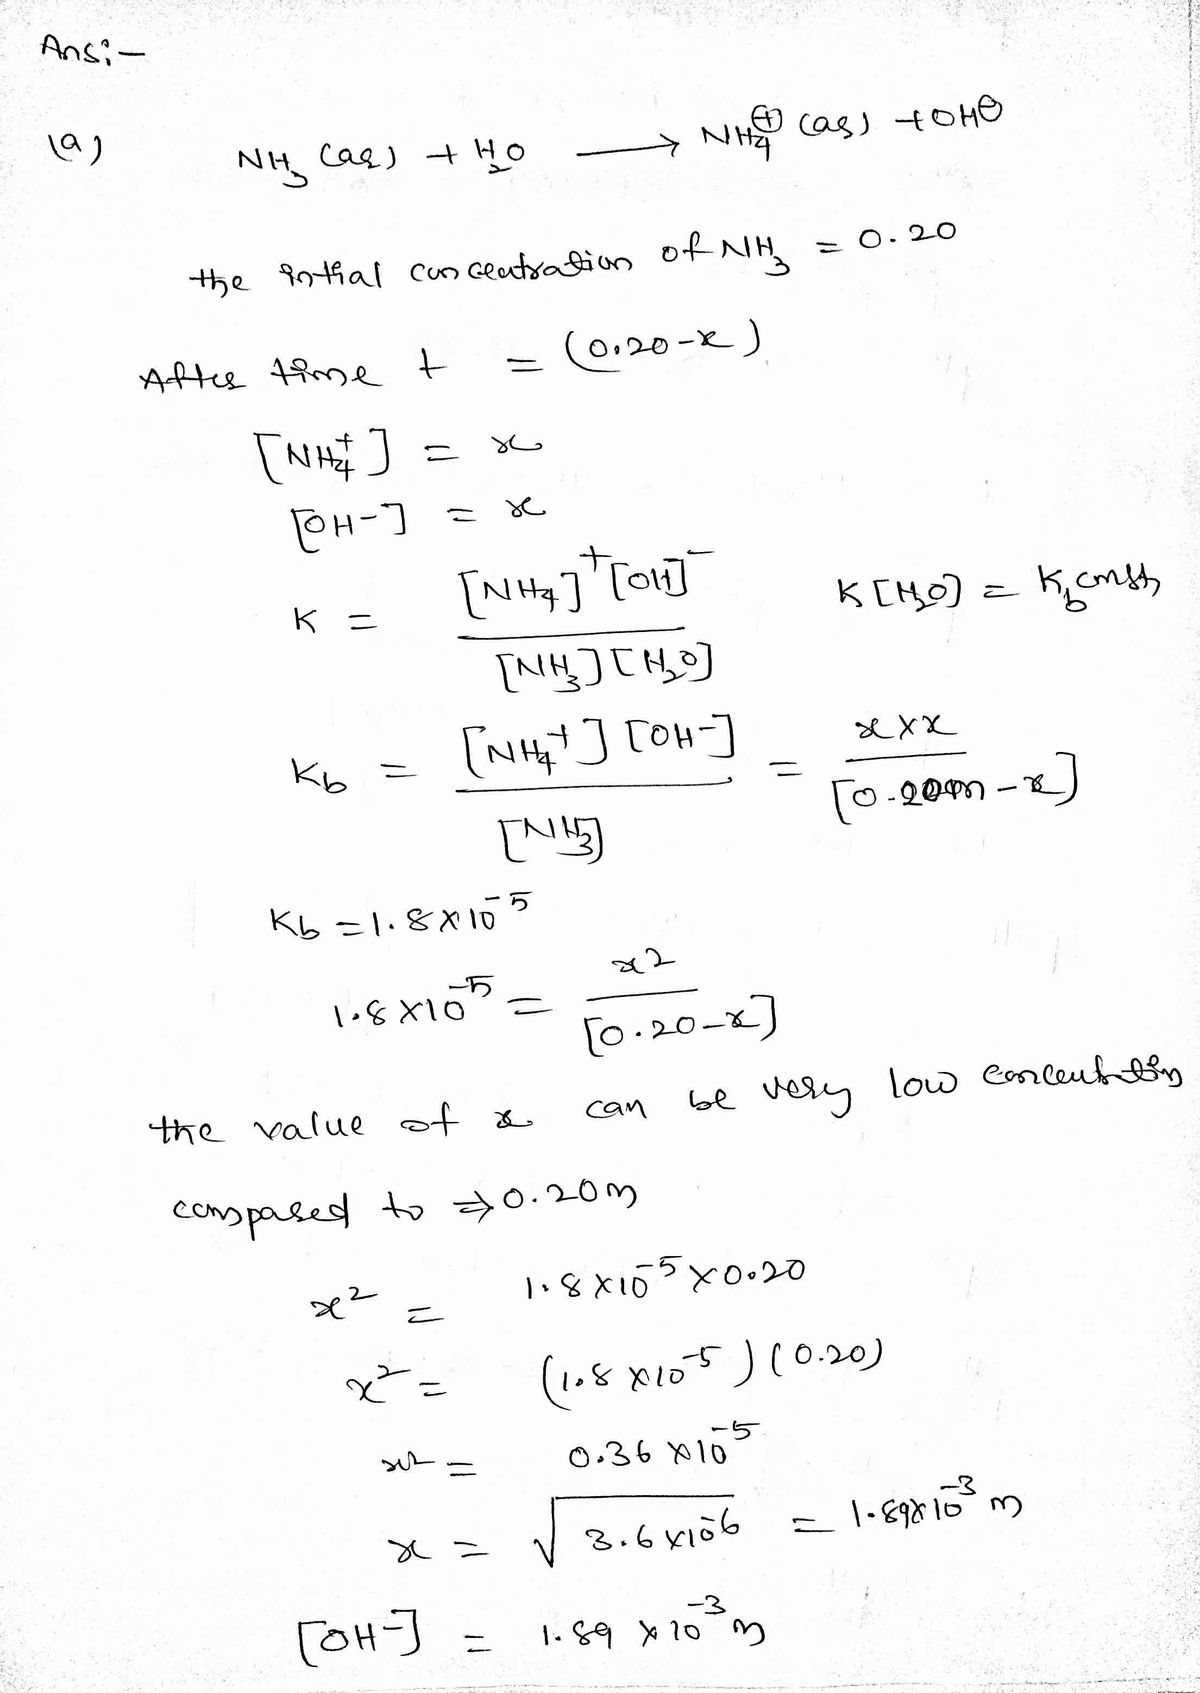 Ans:-
(a) NH₃ (aq) + H₂O ⟶ NH₄⊕ (aq) + OH⊖
the intial concentration of NH₃ = 0.20
After time t = (0.20-x)
[NH₄⁺] = x
[OH-] = x
K = [NH₄]⁺[OH]⁻ / [NH₃][H₂O] K[H₂O] = K_b const
Kb = [NH₄⁺][OH-] / [NH₃] = x×x / [0.20m-x]
Kb = 1.8×10⁻⁵
1.8×10⁻⁵ = x² / [0.20-x]
the value of x can be very low concentration
compared to ⇒ 0.20m
x² = 1.8×10⁻⁵×0.20
x² = (1.8×10⁻⁵)(0.20)
x² = 0.36×10⁻⁵
x = √3.6×10⁻⁶ = 1.89×10⁻³ m
[OH-] = 1.89×10⁻³ m